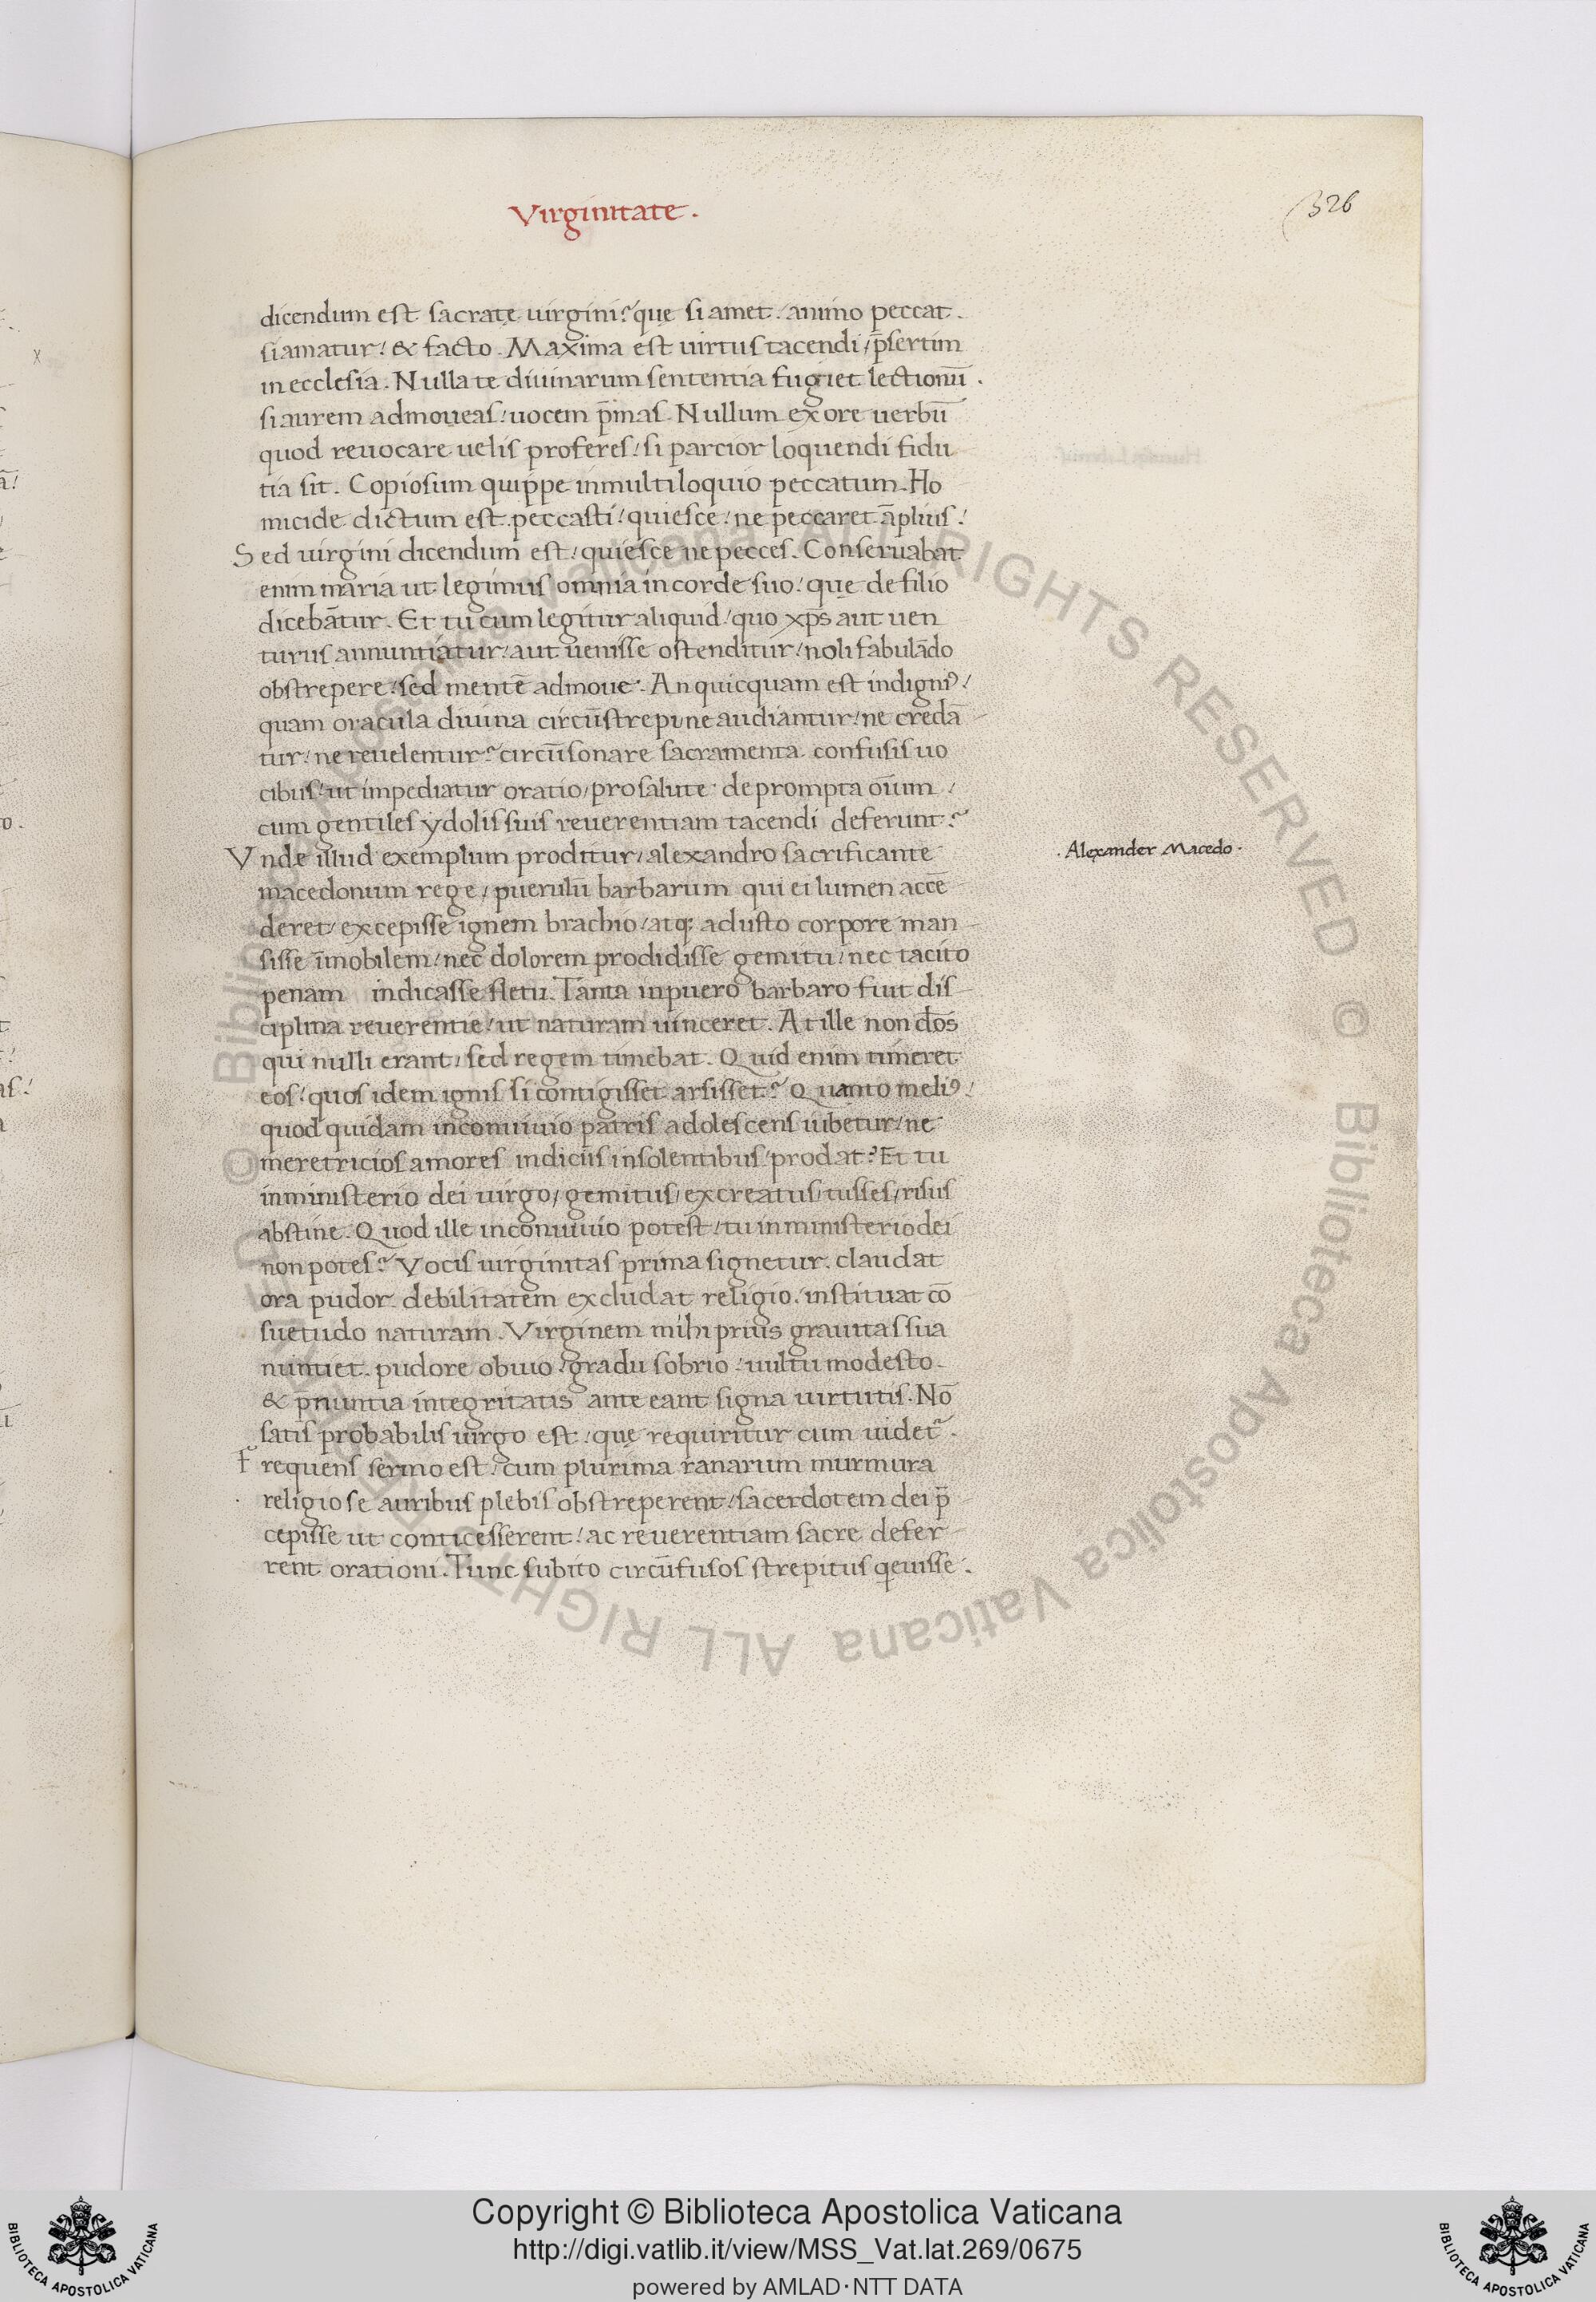 Virginitate.
326
dicendum est sacratę uirgini? quę si amet. animo peccat.
si amatur! & facto. Maxima est uirtus tacendi / p̄sertim
in ecclesia. Nulla te diuinarum sententia fugiet lectionū.
si aurem admoueas! uocem p̄mas. Nullum ex ore uerbū
quod reuocare uelis proferes! si parcior loquendi fidu
tia sit. Copiosum quippe in multiloquio peccatum. Ho
micide dictum est. peccasti! quiesce! ne peccaret āplius!
Sed uirgini dicendum est! quiesce ne pecces. Conseruabat
enim maria ut legimus omnia in corde suo! quę de filio
dicebātur. Et tu cum legitur aliquid! quo xp̄s aut uen
turus annuntiatur! aut uenisse ostenditur! noli fabulādo
obstrepere! sed mentē admoue. An quicquam est indigniꝰ!
quam oracula diuina circūstrepi! ne audiantur! ne credā
tur! ne reuelentur? circūsonare sacramenta confusis uo
cibus! ut impediatur oratio / pro salute deprompta oīum /
cum gentiles ydolis suis reuerentiam tacendi deferunt?
Vnde illud exemplum proditur / alexandro sacrificante
macedonum rege / puerulū barbarum qui ei lumen accē
deret / excepisse ignem brachio / atq; adusto corpore man
sisse īmobilem / nec dolorem prodidisse gemitu / nec tacito
penam indicasse fletu. Tanta in puero barbaro fuit dis
ciplina reuerentie / ut naturam uinceret. At ille non d̄os
qui nulli erant / sed regem timebat. Quid enim timeret
eos! quos idem ignis si contigisset arsisset? Quanto meliꝰ!
quod quidam in conuiuio patris adolescens iubetur / ne
meretricios amores indiciis insolentibus / prodat? Et tu
in ministerio dei uirgo / gemitus / excreatus / tusses / risus
abstine. Quod ille in conuiuio potest / tu in ministerio dei
non potes? Vocis uirginitas prima signetur. claudat
ora pudor. debilitatem excludat religio. instituat cō
suetudo naturam. Virginem mihi prius grauitas sua
nuntiet. pudore obuio! gradu sobrio! uultu modesto.
& p̄nuntia integritatis ante eant signa uirtutis. Nō
satis probabilis uirgo est! quę requiritur cum uidet᷑.
Frequens sermo est! cum plurima ranarum murmura
religiose auribus plebis obstreperent! sacerdotem dei p̄
cepisse ut conticesserent! ac reuerentiam sacre defer
rent orationi. Tunc subito circūfusos strepitus qeuisse.
.Alexander Macedo.
Copyright © Biblioteca Apostolica Vaticana
http://digi.vatlib.it/view/MSS_Vat.lat.269/0675
powered by AMLAD·NTT DATA
BIBLIOTECA APOSTOLICA VATICANA
BIBLIOTECA APOSTOLICA VATICANA
© Biblioteca Apostolica Vaticana ALL RIGHTS RESERVED © Biblioteca Apostolica Vaticana ALL RIGHTS RESERVED